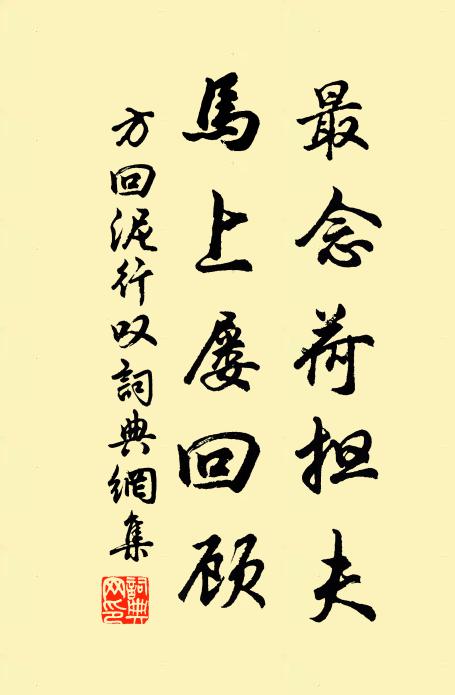 最念荷担夫
馬上屡回顾
方回泥行叹詞典網集
詞典网印